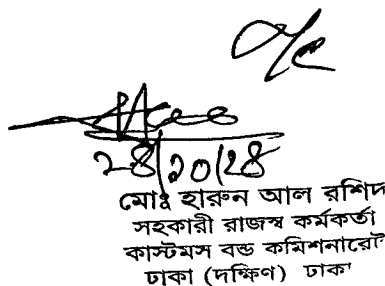 ২৪|১০|২৪
মোঃ হারুন আল রশিদ
সহকারী রাজস্ব কর্মকর্তা
কাস্টমস বন্ড কমিশনারেট
ঢাকা (দক্ষিণ) ঢাকা